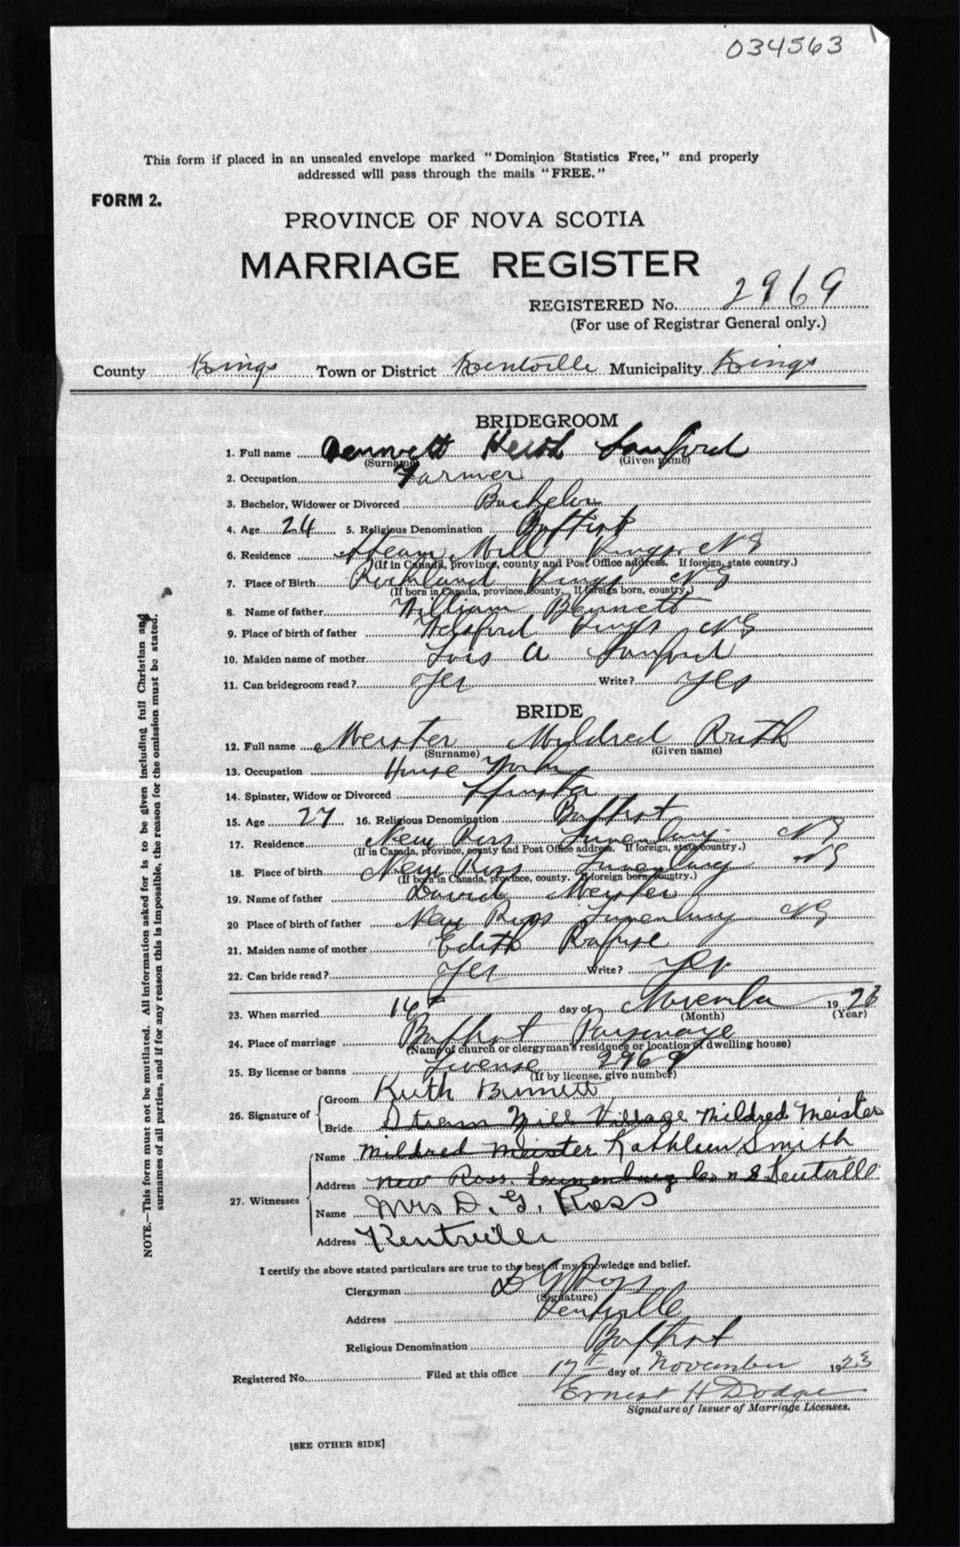 034563
This form if placed in an unsealed envelope marked "Dominion Statistics Free," and properly
addressed will pass through the mails "FREE."
FORM 2.
PROVINCE OF NOVA SCOTIA
MARRIAGE REGISTER
REGISTERED No. 2969
(For use of Registrar General only.)
County Kings Town or District Kentville Municipality Kings
BRIDEGROOM
1. Full name Bennett Sanford
(Surname) (Given name)
2. Occupation Farmer
3. Bachelor, Widower or Divorced Bachelor
4. Age 24 5. Religious Denomination Baptist
6. Residence Steam Mill Kings NS
(If in Canada, province, county and Post Office address. If foreign, state country.)
7. Place of Birth Kings NS
(If born in Canada, province, county. If foreign born, country.)
8. Name of father William Bennett
9. Place of birth of father Welsford Kings NS
10. Maiden name of mother Lois A Sanford
11. Can bridegroom read? Yes Write? Yes
BRIDE
12. Full name Meister Mildred Ruth
(Surname) (Given name)
13. Occupation House Work
14. Spinster, Widow or Divorced Spinster
15. Age 27 16. Religious Denomination Baptist
17. Residence New Ross Lunenburg NS
(If in Canada, province, county and Post Office address. If foreign, state country.)
18. Place of birth New Ross Lunenburg NS
(If born in Canada, province, county. If foreign born, country.)
19. Name of father David Meister
20 Place of birth of father New Ross Lunenburg NS
21. Maiden name of mother Edith Rafuse
22. Can bride read? Yes Write? Yes
23. When married 16th day of November 1923
(Month) (Year)
24. Place of marriage Baptist Parsonage
(Name of church or clergyman's residence or location of dwelling house)
25. By license or banns License 2969
(If by license, give number)
26. Signature of Groom Keith Bennett
Bride Steam Mill Village Mildred Meister
27. Witnesses Name Mildred Meister Kathleen Smith
Address New Ross Lunenburg Co N S Kentville
Name Mrs D. G. Ross
Address Kentville
I certify the above stated particulars are true to the best of my knowledge and belief.
Clergyman D G Ross
(Signature)
Address Kentville
Religious Denomination Baptist
Registered No. Filed at this office 17th day of November 1923
Ernest H Dodge
Signature of Issuer of Marriage Licenses.
[SEE OTHER SIDE]
NOTE.—This form must not be mutilated. All information asked for is to be given including full Christian and
surnames of all parties, and if for any reason this is impossible, the reason for the omission must be stated.